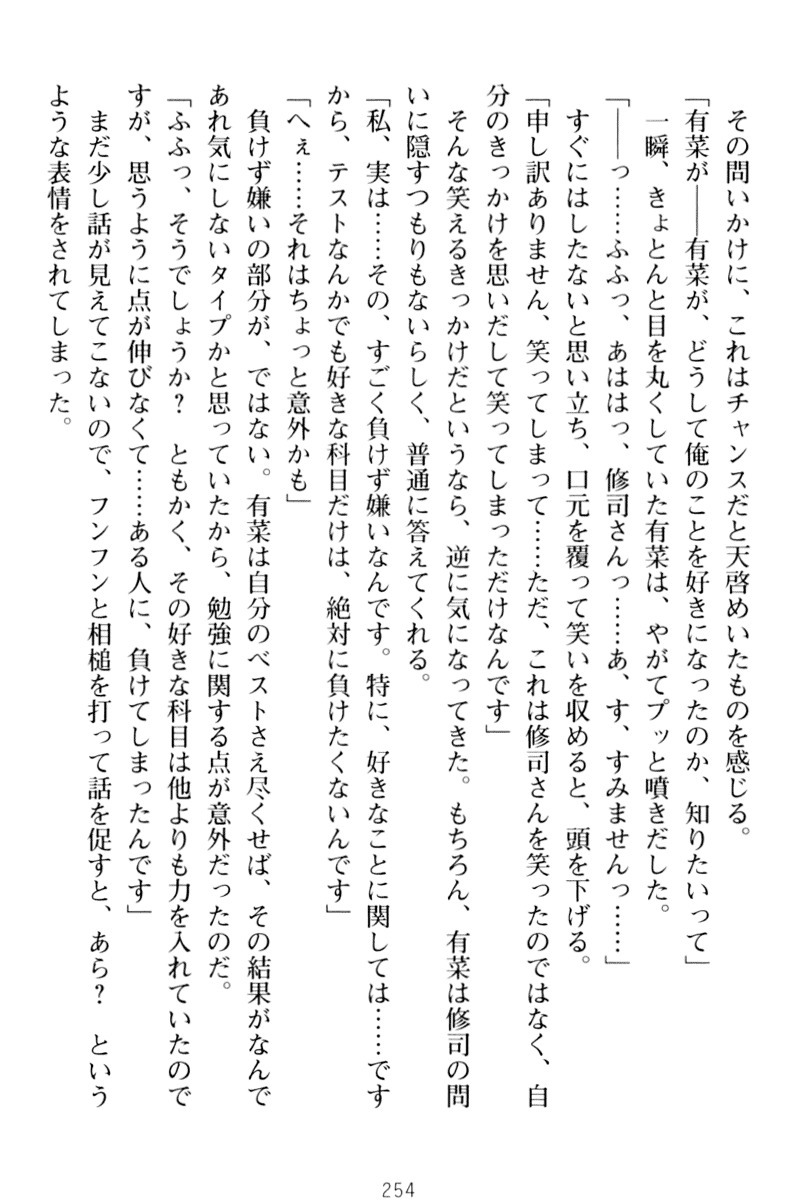 その問いかけに、これはチャンスだと天啓めいたものを感じる。
「有菜が――有菜が、どうして俺のことを好きになったのか、知りたいって」
　一瞬、きょとんと目を丸くしていた有菜は、やがてプッと噴きだした。
「――っ……ふふっ、あははっ、修司さんっ……あ、す、すみませんっ……」
　すぐにはしたないと思い立ち、口元を覆って笑いを収めると、頭を下げる。
「申し訳ありません、笑ってしまって……ただ、これは修司さんを笑ったのではなく、自
分のきっかけを思いだして笑ってしまっただけなんです」
　そんな笑えるきっかけだというなら、逆に気になってきた。もちろん、有菜は修司の問
いに隠すつもりもないらしく、普通に答えてくれる。
「私、実は……その、すごく負けず嫌いなんです。特に、好きなことに関しては……です
から、テストなんかでも好きな科目だけは、絶対に負けたくないんです」
「へぇ……それはちょっと意外かも」
　負けず嫌いの部分が、ではない。有菜は自分のベストさえ尽くせば、その結果がなんで
あれ気にしないタイプかと思っていたから、勉強に関する点が意外だったのだ。
「ふふっ、そうでしょうか？　ともかく、その好きな科目は他よりも力を入れていたので
すが、思うように点が伸びなくて……ある人に、負けてしまったんです」
　まだ少し話が見えてこないので、フンフンと相槌を打って話を促すと、あら？　という
ような表情をされてしまった。
254